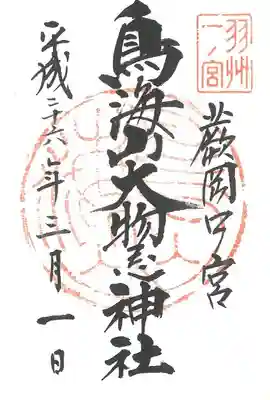 羽州一ノ宮
蕨岡口宮
鳥海山大物忌神社
平成二十六年三月一日